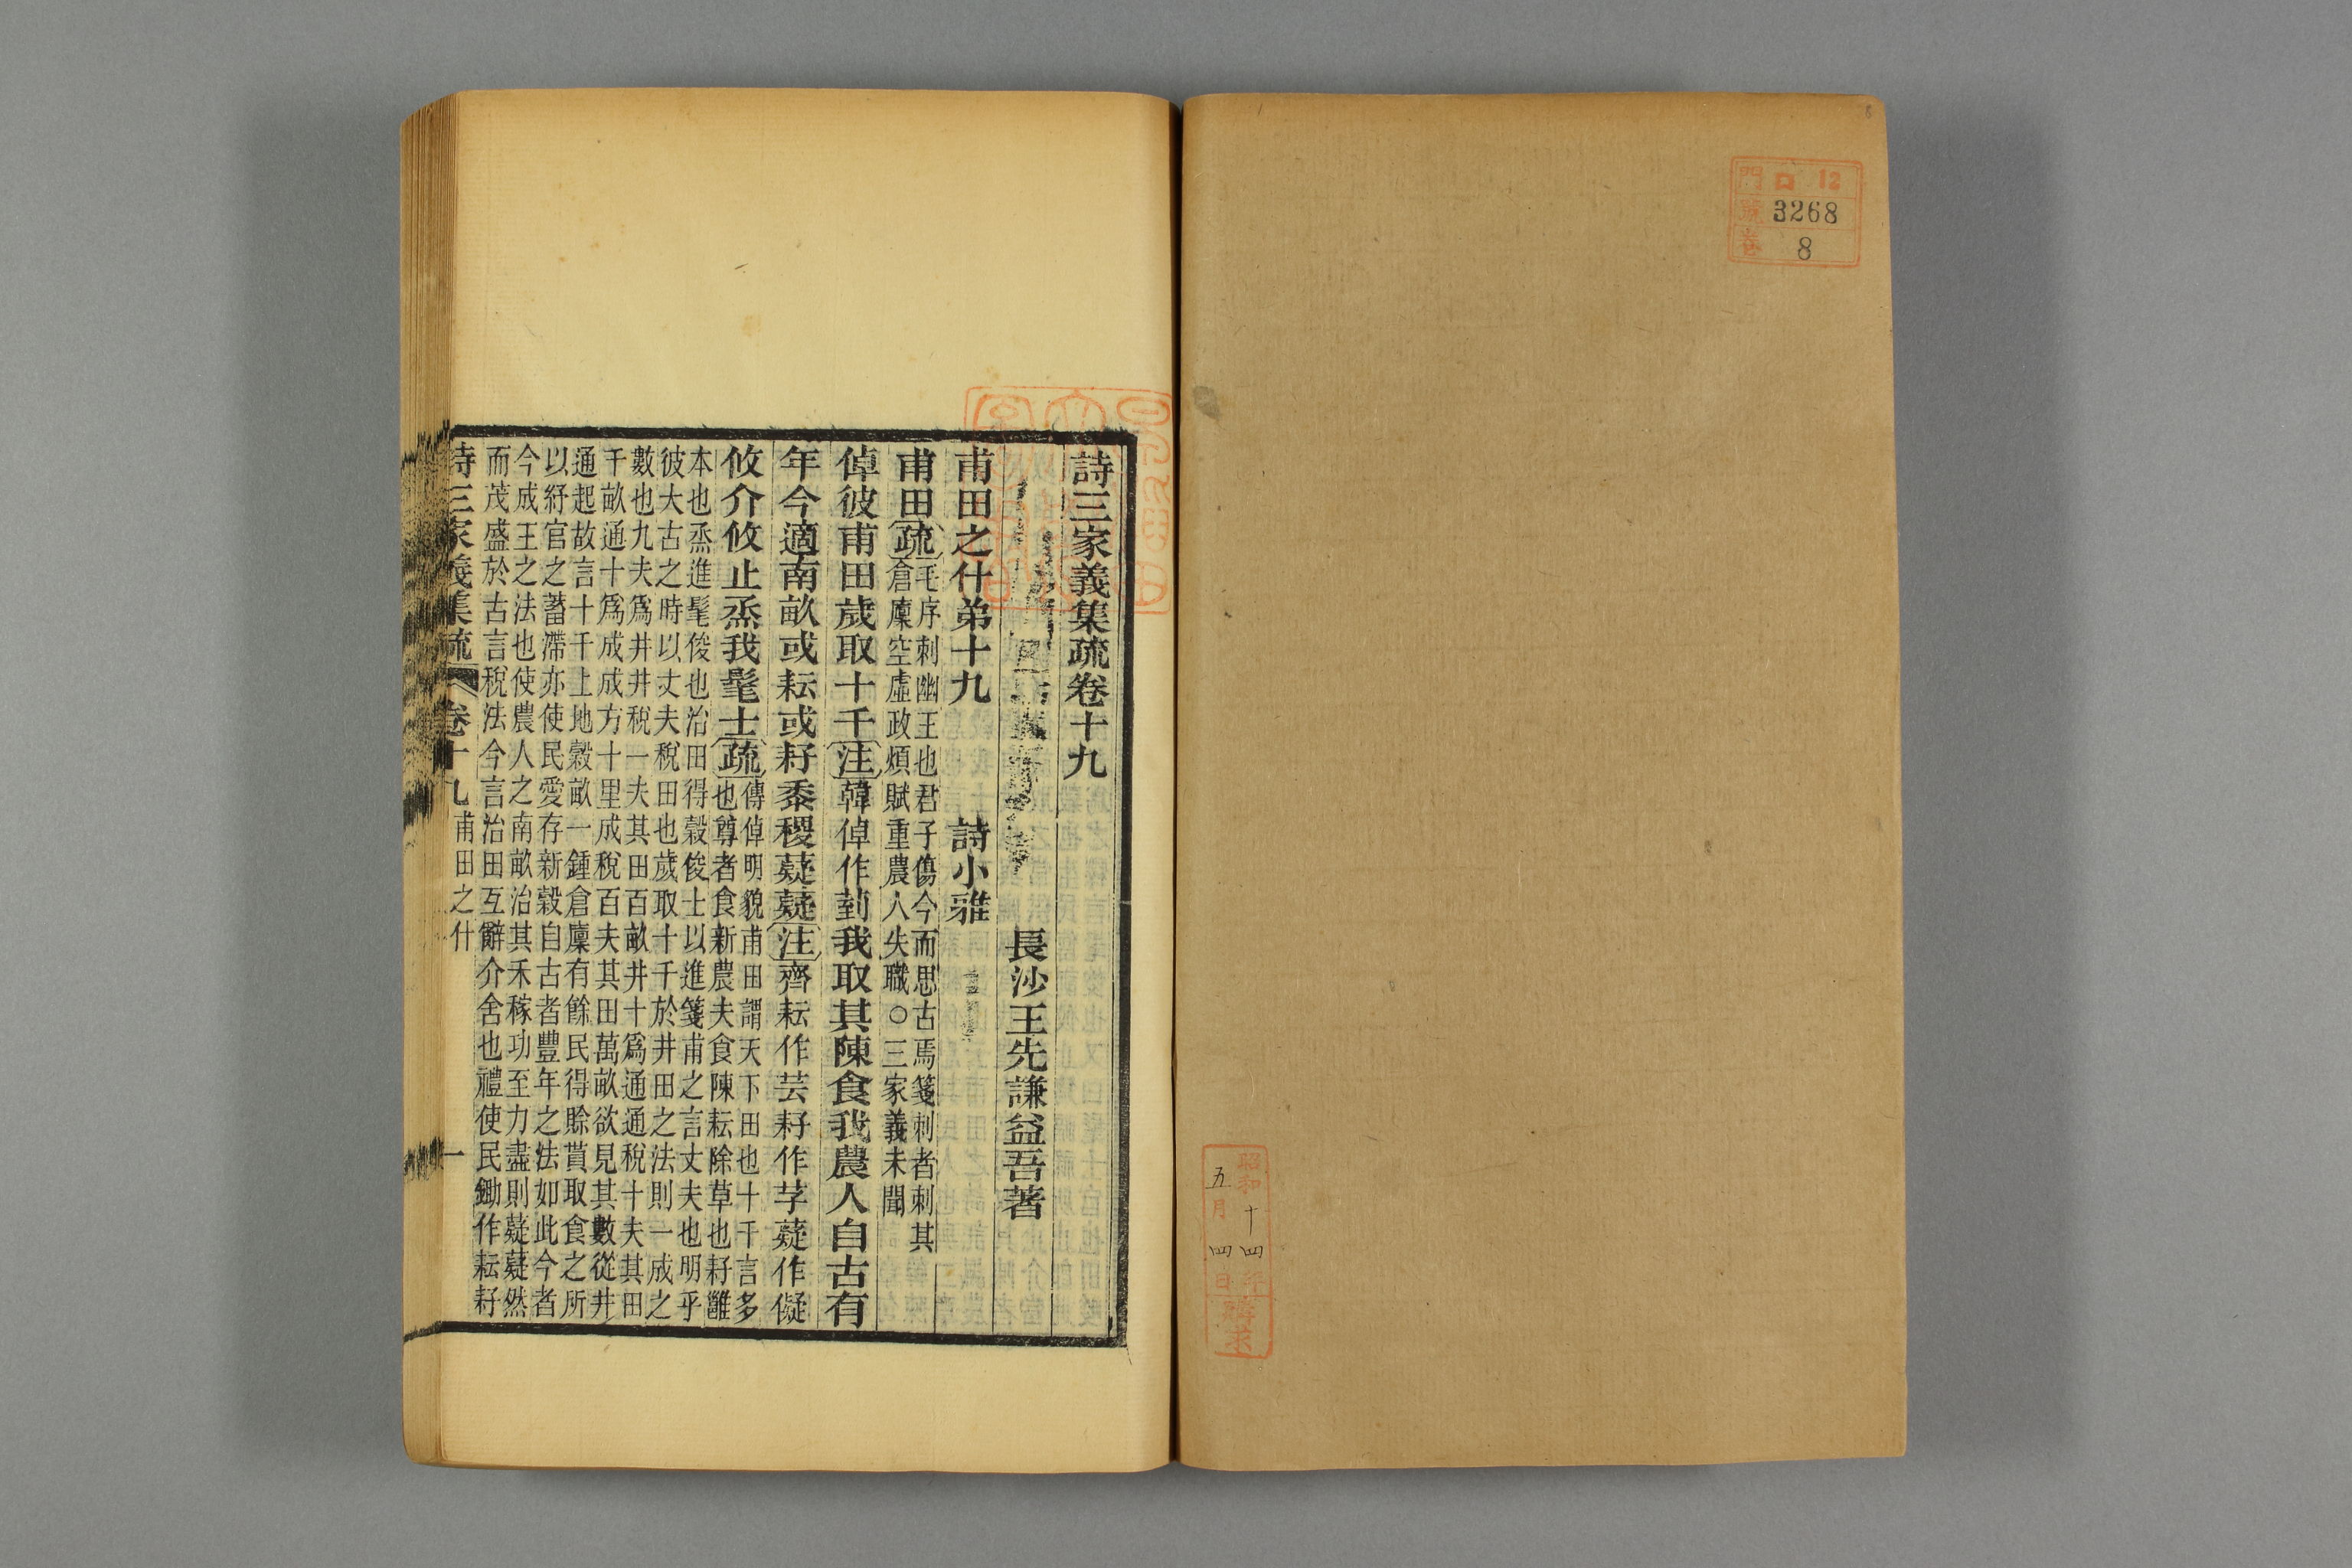 門 ロ 12
號 3268
卷 8
昭和十四年
五月四日
購求
詩三家義集疏卷十九
長沙王先謙益吾著
甫田之什弟十九 詩小雅
甫田疏毛序刺幽王也君子傷今而思古焉箋刺者刺其
倉廩空虛政煩賦重農人失職○三家義未聞
倬彼甫田歲取十千注韓倬作菿我取其陳食我農人自古有
年今適南畝或耘或耔黍稷薿薿注齊耘作芸耔作芓薿作儗
攸介攸止烝我髦士疏傳倬明貌甫田謂天下田也十千言多
也尊者食新農夫食陳耘除草也耔雝
本也烝進髦俊也治田得穀俊士以進箋甫之言丈夫也明乎
彼大古之時以丈夫稅田也歲取十千於井田之法則一成之
數也九夫爲井井稅一夫其田百畝井十爲通通稅十夫其田
千畝通十爲成成方十里成稅百夫其田萬畝欲見其數從井
通起故言十千上地穀畝一鍾倉廩有餘民得賒貰取食之所
以紓官之蓄滯亦使民愛存新穀自古者豐年之法如此今者
今成王之法也使農人之南畝治其禾稼功至力盡則薿薿然
而茂盛於古言稅法今言治田互辭介舍也禮使民鋤作耘耔
詩三家義集疏 卷十九 甫田之什 一